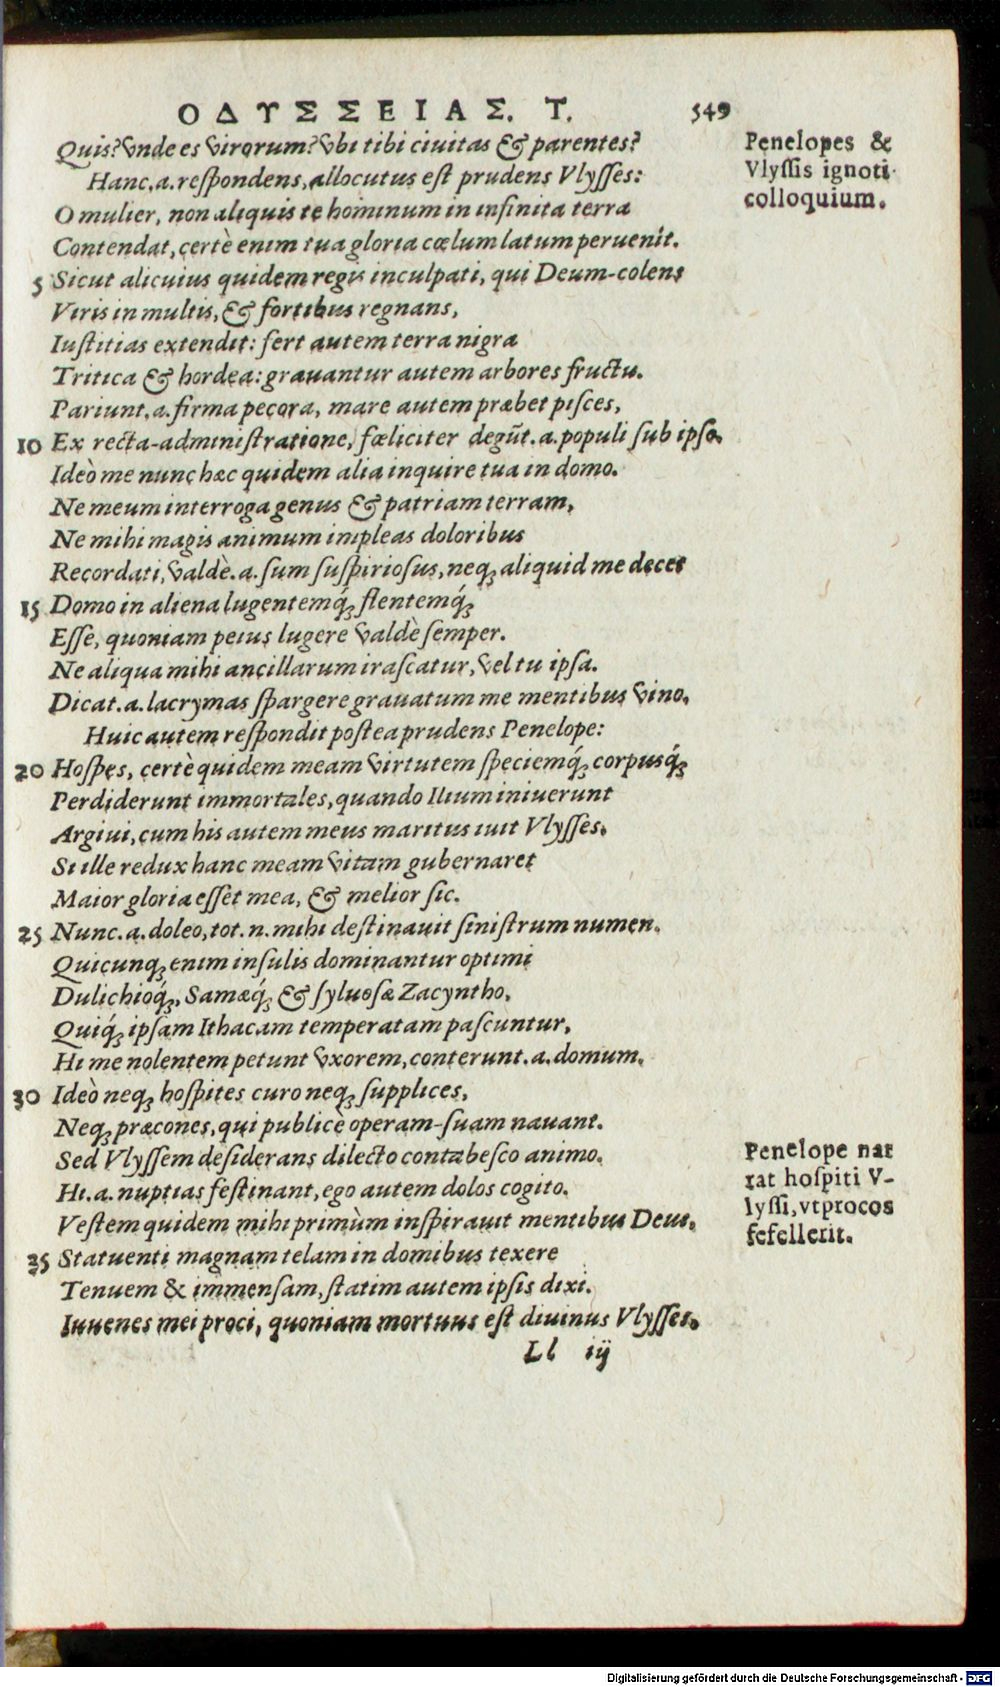 ΟΔΥΣΣΕΙΑΣ. Τ. 549
Quis? vnde es virorum? vbi tibi ciuitas & parentes?
Hanc.a. respondens, allocutus est prudens Vlysses:
O mulier, non aliquis te hominum in infinita terra
Contendat, certè enim tua gloria cœlum latum peruenit.
5 Sicut alicuius quidem regis inculpati, qui Deum-colens
Viris in multis, & fortibus regnans,
Iustitias extendit: fert autem terra nigra
Tritica & hordea: grauantur autem arbores fructu.
Pariunt.a. firma pecora, mare autem præbet pisces,
10 Ex recta-administratione, fœliciter degūt.a. populi sub ipso.
Ideò me nunc hæc quidem alia inquire tua in domo.
Ne meum interroga genus & patriam terram,
Ne mihi magis animum impleas doloribus
Recordati, valdè.a. sum suspiriosus, neq; aliquid me decet
15 Domo in aliena lugentemq́; flentemq́;
Esse, quoniam peius lugere valdè semper.
Ne aliqua mihi ancillarum irascatur, vel tu ipsa.
Dicat.a. lacrymas spargere grauatum me mentibus vino.
Huic autem respondit postea prudens Penelope:
20 Hospes, certè quidem meam virtutem speciemq́; corpusq́;
Perdiderunt immortales, quando Ilium iniuerunt
Argiui, cum his autem meus maritus iuit Vlysses.
Si ille redux hanc meam vitam gubernaret
Maior gloria esset mea, & melior sic.
25 Nunc.a. doleo, tot.n. mihi destinauit sinistrum numen.
Quicunq; enim insulis dominantur optimi
Dulichioq́;, Samæq́; & syluosæ Zacyntho,
Quiq́; ipsam Ithacam temperatam pascuntur,
Hi me nolentem petunt vxorem, conterunt.a. domum.
30 Ideò neq; hospites curo neq; supplices,
Neq; præcones, qui publicè operam-suam nauant.
Sed Vlyssem desiderans dilecto contabesco animo.
Hi.a. nuptias festinant, ego autem dolos cogito.
Vestem quidem mihi primùm inspirauit mentibus Deus.
35 Statuenti magnam telam in domibus texere
Tenuem & immensam, statim autem ipsis dixi.
Iuuenes mei proci, quoniam mortuus est diuinus Vlysses.
Ll iij
Penelopes &
Vlyssis ignoti
colloquium.
Penelope nar
rat hospiti V-
lyssi, vt procos
fefellerit.
Digitalisierung gefördert durch die Deutsche Forschungsgemeinschaft - DFG